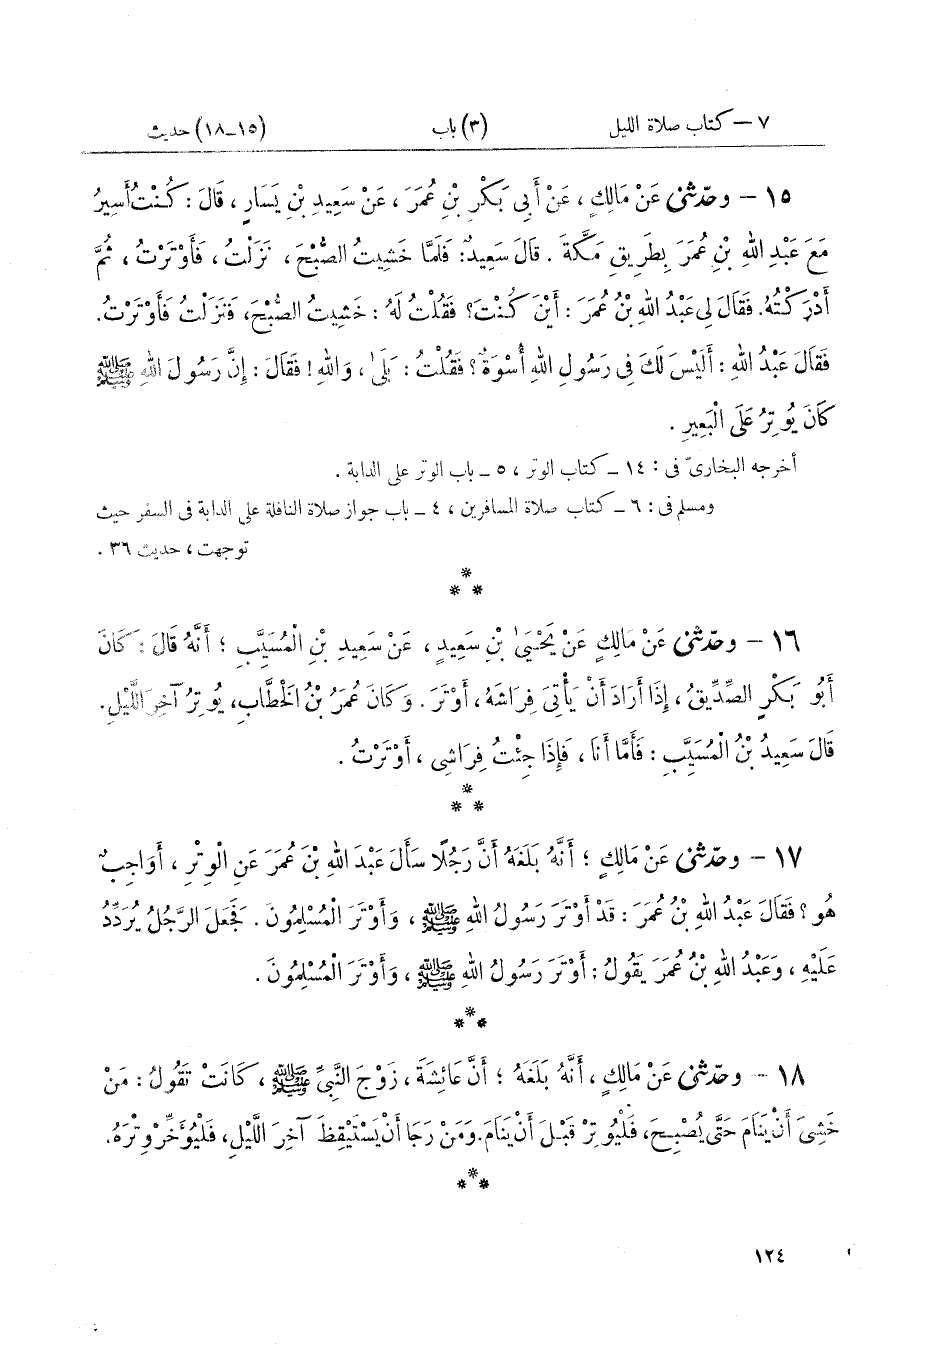 ٧ — كتاب صلاة الليل (٣) باب (١٥ـ١٨) حديث
١٥ — وحدّثنى عَنْ مَالِكٍ ، عَنْ أَبِى بَكْرِ بْنِ عُمَرَ ، عَنْ سَعِيدِ بْنِ يَسَارٍ ، قَالَ : كُنْتُ أَسِيرُ
مَعَ عَبْدِ اللهِ بْنِ عُمَرَ بِطَرِيقِ مَكَّةَ . قَالَ سَعِيدٌ : فَلَمَّا خَشِيتُ الصُّبْحَ ، نَزَلْتُ ، فَأَوْتَرْتُ ، ثُمَّ
أَدْرَكْتُهُ . فَقَالَ لِى عَبْدُ اللهِ بْنُ عُمَرَ : أَيْنَ كُنْتَ ؟ فَقُلْتُ لَهُ : خَشِيتُ الصُّبْحَ ، فَنَزَلْتُ فَأَوْتَرْتُ .
فَقَالَ عَبْدُ اللهِ : أَلَيْسَ لَكَ فِى رَسُولِ اللهِ أُسْوَةٌ ؟ فَقُلْتُ : بَلَى ، وَاللهِ ! فَقَالَ : إِنَّ رَسُولَ اللهِ ﷺ
كَانَ يُوتِرُ عَلَى الْبَعِيرِ .
أخرجه البخارىّ فى : ١٤ ـ كتاب الوتر ، ٥ ـ باب الوتر على الدابة .
ومسلم فى : ٦ ـ كتاب صلاة المسافرين ، ٤ ـ باب جواز صلاة النافلة على الدابة فى السفر حيث
توجهت ، حديث ٣٦ .
*
* *
١٦ — وحدّثنى عَنْ مَالِكٍ عَنْ يَحْيَى بْنِ سَعِيدٍ ، عَنْ سَعِيدِ بْنِ الْمُسَيَّبِ ؛ أَنَّهُ قَالَ : كَانَ
أَبُو بَكْرٍ الصِّدِّيقُ ، إِذَا أَرَادَ أَنْ يَأْتِىَ فِرَاشَهُ ، أَوْتَرَ . وَكَانَ عُمَرُ بْنُ الْخَطَّابِ ، يُوتِرُ آخِرَ اللَّيْلِ .
قَالَ سَعِيدُ بْنُ الْمُسَيَّبِ : فَأَمَّا أَنَا ، فَإِذَا جِئْتُ فِرَاشِى ، أَوْتَرْتُ .
*
* *
١٧ — وحدّثنى عَنْ مَالِكٍ ؛ أَنَّهُ بَلَغَهُ أَنَّ رَجُلًا سَأَلَ عَبْدَ اللهِ بْنَ عُمَرَ عَنِ الْوِتْرِ ، أَوَاجِبٌ
هُوَ ؟ فَقَالَ عَبْدُ اللهِ بْنُ عُمَرَ : قَدْ أَوْتَرَ رَسُولُ اللهِ ﷺ ، وَأَوْتَرَ الْمُسْلِمُونَ . فَجَعَلَ الرَّجُلُ يُرَدِّدُ
عَلَيْهِ ، وَعَبْدُ اللهِ بْنُ عُمَرَ يَقُولُ : أَوْتَرَ رَسُولُ اللهِ ﷺ ، وَأَوْتَرَ الْمُسْلِمُونَ .
*
* *
١٨ — وحدّثنى عَنْ مَالِكٍ ، أَنَّهُ بَلَغَهُ ؛ أَنَّ عَائِشَةَ ، زَوْجَ النَّبِىِّ ﷺ ، كَانَتْ تَقُولُ : مَنْ
خَشِىَ أَنْ يَنَامَ حَتَّى يُصْبِحَ ، فَلْيُوتِرْ قَبْلَ أَنْ يَنَامَ . وَمَنْ رَجَا أَنْ يَسْتَيْقِظَ آخِرَ اللَّيْلِ ، فَلْيُؤَخِّرْ وِتْرَهُ .
*
* *
١٢٤